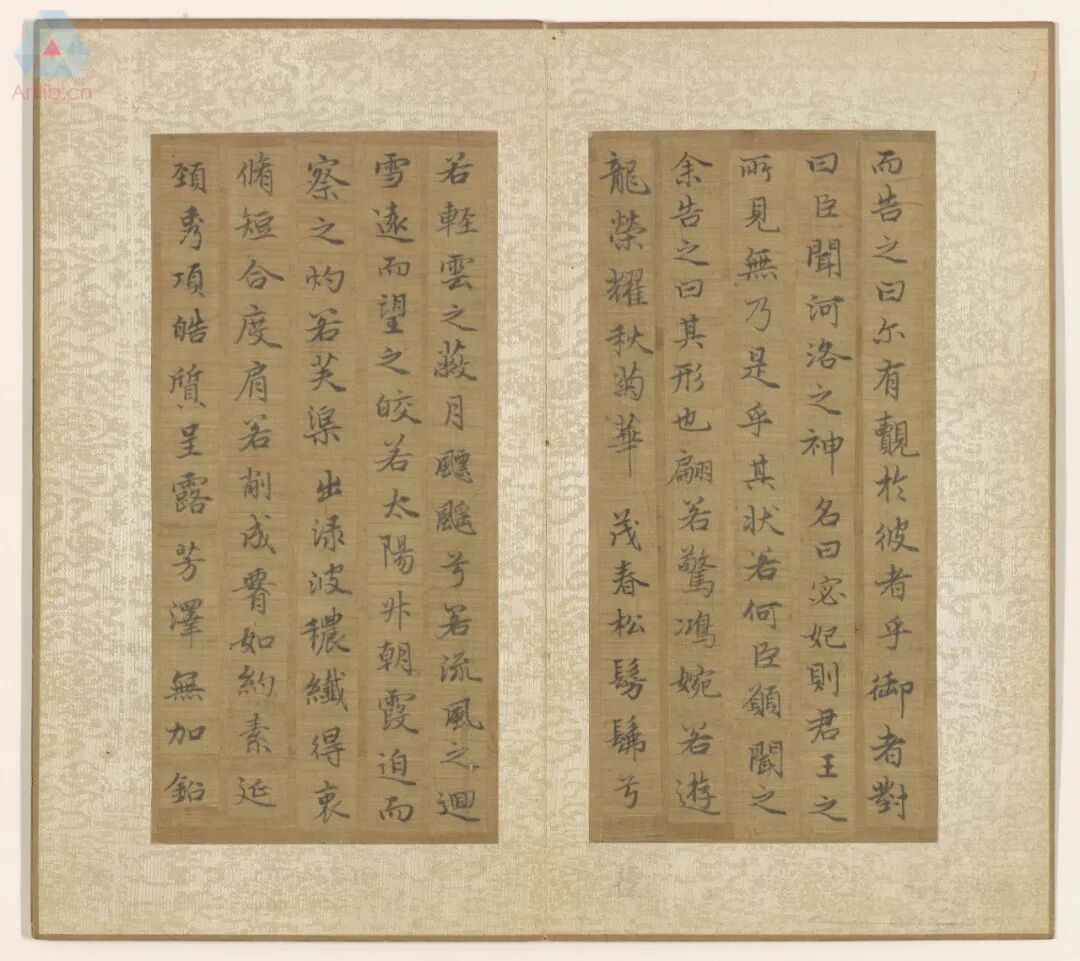 而告之曰尔有觀於彼者乎御者對
曰臣聞河洛之神名曰宓妃則君王之
所見無乃是乎其状若何臣願聞之
余告之曰其形也翩若驚鴻婉若遊
龍榮耀秋菊華茂春松髣髴兮
若輕雲之蔽月飃颻兮若流風之迴
雪遠而望之皎若太陽升朝霞迫而
察之灼若芙渠出渌波穠纖得衷
脩短合度肩若削成腰如約素延
頚秀項皓質呈露芳澤無加鉛
Artlib.cn